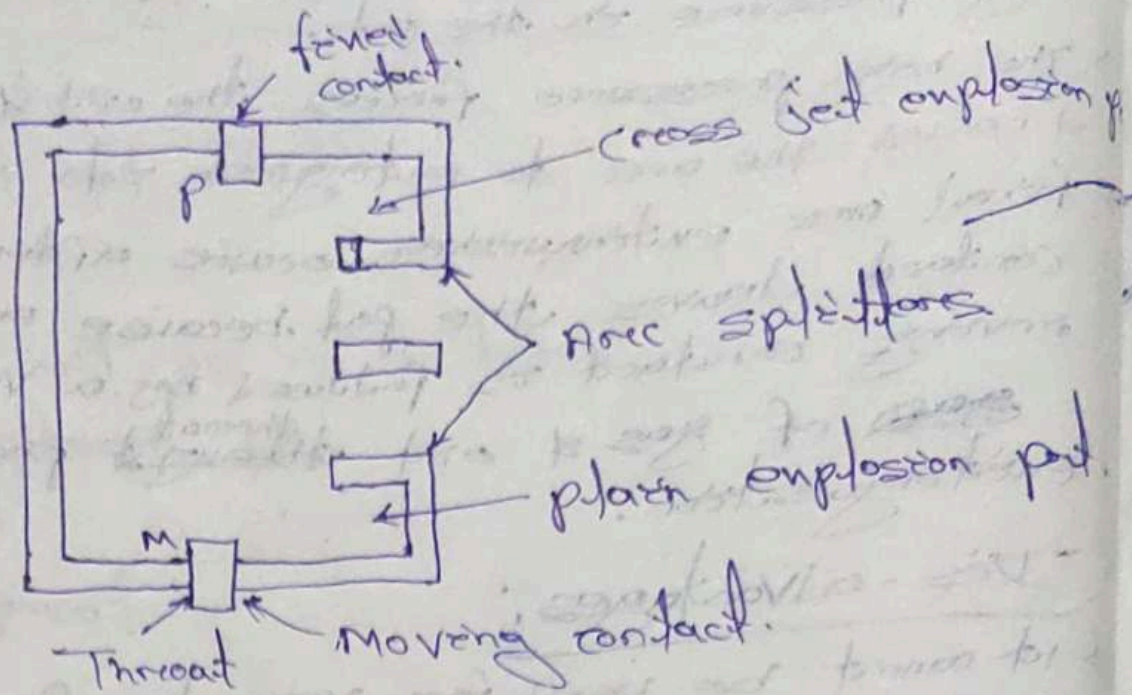 fixed
contact.
P
cross jet explosion p
Arc splitters
plain explosion pot.
M
Throat
Moving contact.